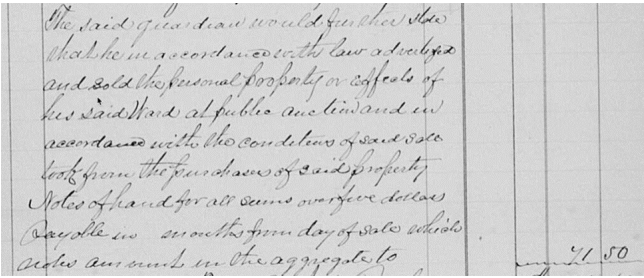 The said guardian would further state
that he in accordance with law advertized
and sold the personal property or effects of
his said Ward at public auction and in
accordance with the conditions of said sale
took from the purchasers of said property
Notes of hand for all sums over five dollars
Payable in months from day of sale which
notes amount in the aggregate to 71 50